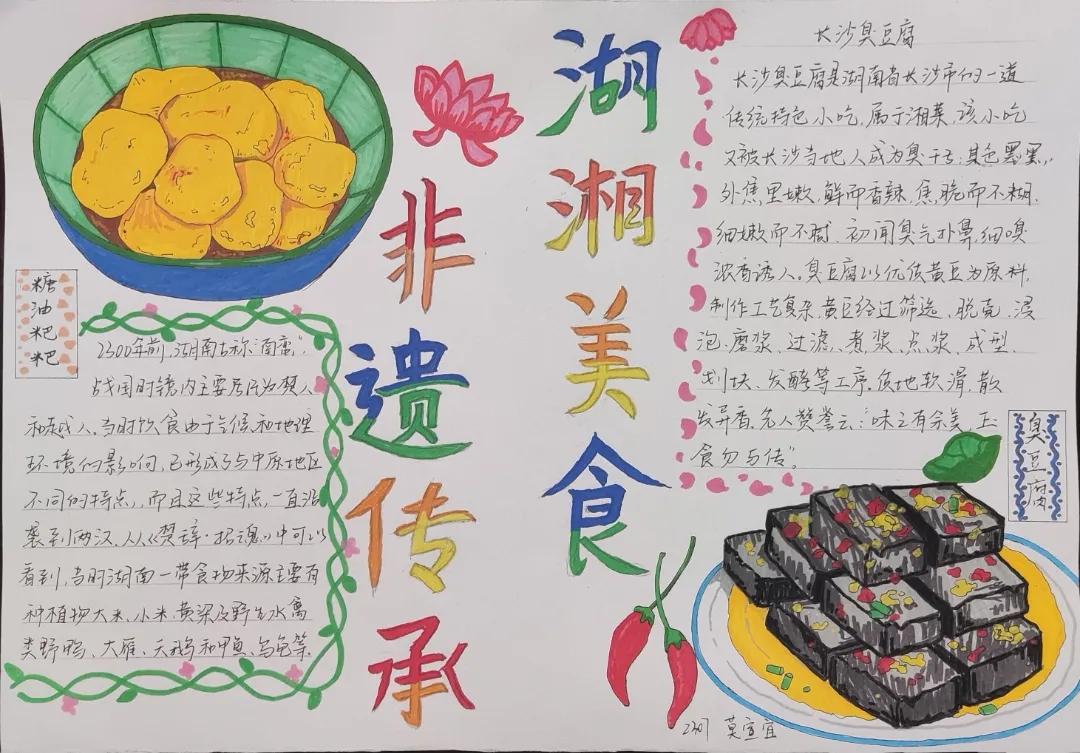 湖湘美食
非遗传承
糖油粑粑
2300年前,湖南古称"南蛮",
战国时境内主要居民为楚人
和越人。当时饮食由于气候和地理
环境的影响,已形成了与中原地区
不同的特点,而且这些特点一直沿
袭到两汉,从《楚辞·招魂》中可以
看到,当时湖南一带食物来源主要有
种植物大米、小米、黄粱及野生水禽
类野鸭、大雁、天鹅和甲鱼、乌龟等.
长沙臭豆腐
长沙臭豆腐是湖南省长沙市的一道
传统特色小吃,属于湘菜,该小吃
又被长沙当地人成为臭干子:其色墨黑,
外焦里嫩,鲜而香辣,焦脆而不糊,
细嫩而不腻,初闻臭气扑鼻,细嗅
浓香诱人。臭豆腐以优质黄豆为原料,
制作工艺复杂,黄豆经过筛选、脱壳、浸
泡、磨浆、过滤、煮浆、点浆、成型、
划块、发酵等工序。质地软滑,散
发异香。名人赞誉云:"味之有余美,玉
食勿与传"。
臭豆腐
莫宣宜